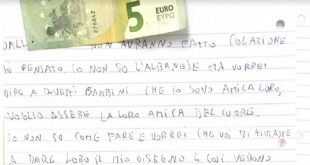 5 EURO
ΕΥΡΩ
DALL NON AVRANNO FATTO COLAZIONE
HO PENSATO. IO NON SO L'ALBANESE MA VORREI
DIRE A QUESTI BAMBINI CHE IO SONO AMICA LORO,
VOGLIO ESSERE LA LORO AMICA DEL CUORE.
IO NON SO COME FARE E VORREI CHE VOI MI AIUTASTE
A DARE LORO IL MIO DISEGNO E COSÌ VEDONO